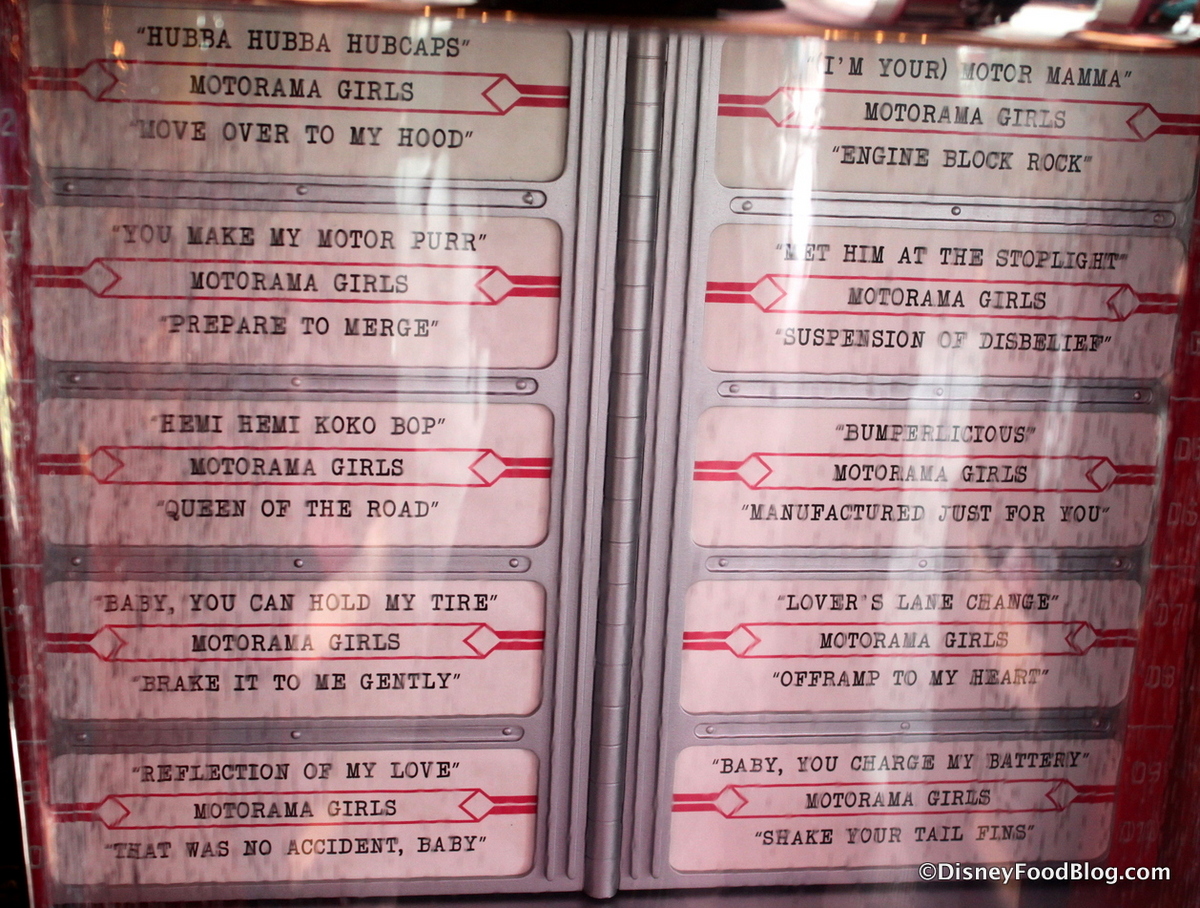 "HUBBA HUBBA HUBCAPS"
MOTORAMA GIRLS
"MOVE OVER TO MY HOOD"
"YOU MAKE MY MOTOR PURR"
MOTORAMA GIRLS
"PREPARE TO MERGE"
"HEMI HEMI KOKO BOP"
MOTORAMA GIRLS
"QUEEN OF THE ROAD"
"BABY, YOU CAN HOLD MY TIRE"
MOTORAMA GIRLS
"BRAKE IT TO ME GENTLY"
"REFLECTION OF MY LOVE"
MOTORAMA GIRLS
"THAT WAS NO ACCIDENT, BABY"
"(I'M YOUR) MOTOR MAMMA"
MOTORAMA GIRLS
"ENGINE BLOCK ROCK"
"MET HIM AT THE STOPLIGHT"
MOTORAMA GIRLS
"SUSPENSION OF DISBELIEF"
"BUMPERLICIOUS"
MOTORAMA GIRLS
"MANUFACTURED JUST FOR YOU"
"LOVER'S LANE CHANGE"
MOTORAMA GIRLS
"OFFRAMP TO MY HEART"
"BABY, YOU CHARGE MY BATTERY"
MOTORAMA GIRLS
"SHAKE YOUR TAIL FINS"
D7
D8
D9
D10
©DisneyFoodBlog.com